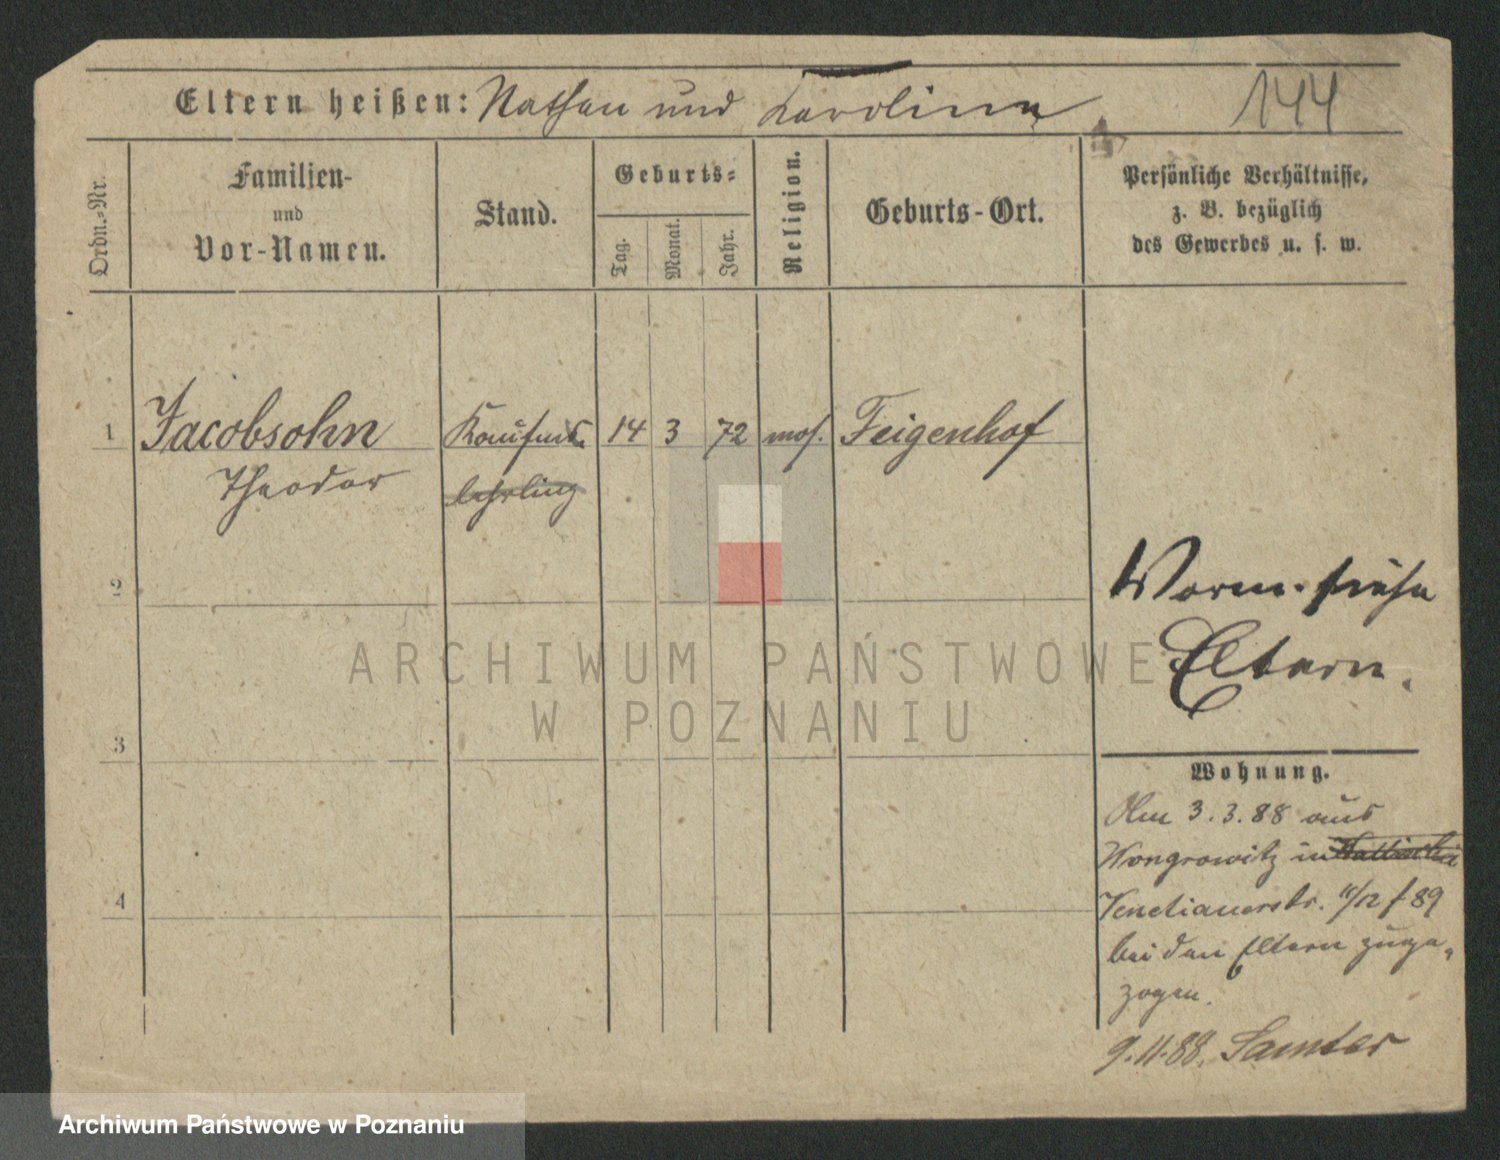 Eltern heißen: Nathan und Karoline
144
Ordn.=Nr.
Familien-
und
Vor-Namen.
Stand.
Geburts=
Tag.
Monat.
Jahr.
Religion.
Geburts-Ort.
Persönliche Verhältnisse,
z. B. bezüglich
des Gewerbes u. s. w.
1 Jacobsohn Kaufms. 14 3 72 mos. Feigenhof
Theodor lehrling
2
Vorm. siehe
Eltern.
ARCHIWUM PAŃSTWOWE
W POZNANIU
3
Wohnung.
Am 3.3.88 aus
Wongrowitz in
4
Venetianerstr. 11/12 f 89
bei den Eltern zuge-
zogen.
9.11.88. Samter
Archiwum Państwowe w Poznaniu